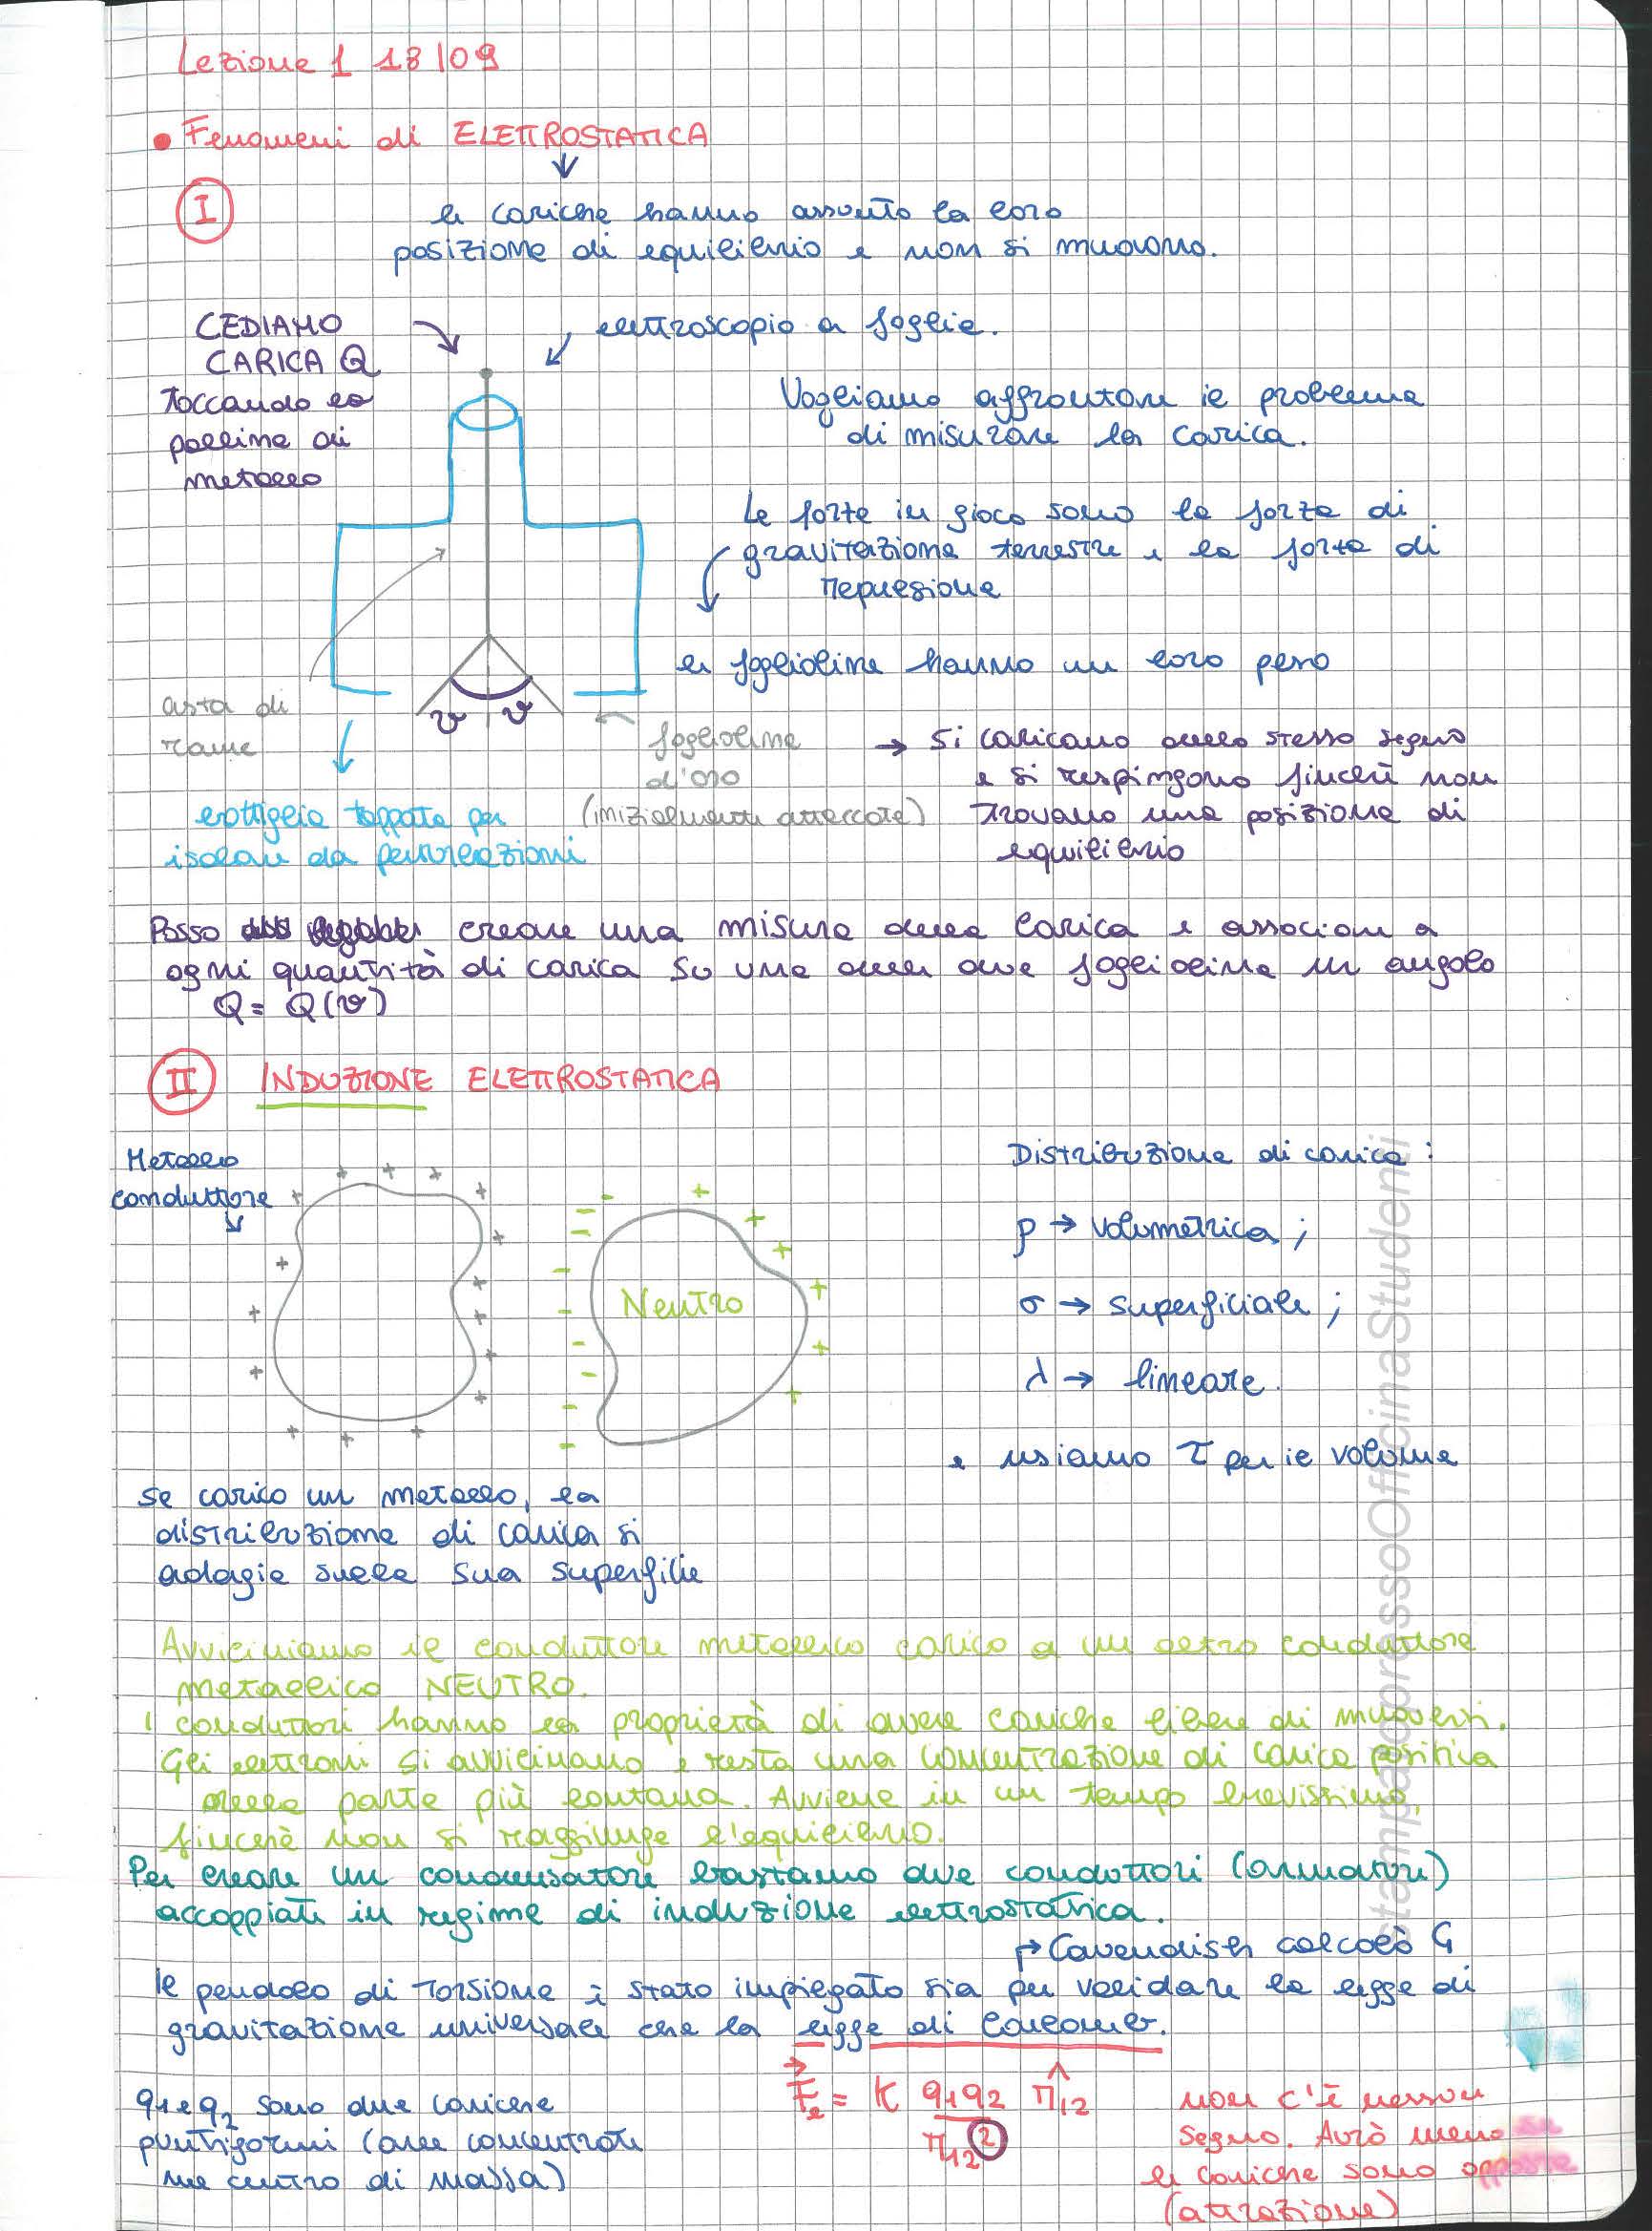 Lezione 1 18/09
• Fenomeni di ELETTROSTATICA
I
le cariche hanno assunto la loro
posizione di equilibrio e non si muovono.
CEDIAMO
CARICA Q
toccando la
pallina di
metallo
elettroscopio a foglie.
Vogliamo affrontare il problema
di misurare la carica.
Le forze in gioco sono la forza di
gravitazione terrestre e la forza di
repulsione
le foglioline hanno un loro peso
asta di
rame
ϑ ϑ
foglioline
d'oro
(inizialmente attaccate)
→ si caricano dello stesso segno
e si respingono finché non
trovano una posizione di
equilibrio
bottiglia tappata per
isolare da perturbazioni
Posso creare una misura della carica e associare a
ogni quantità di carica su una delle due foglioline un angolo
Q = Q(ϑ)
II INDUZIONE ELETTROSTATICA
Metallo
conduttore
Neutro
Distribuzione di carica:
ρ → volumetrica;
σ → superficiale;
λ → lineare.
e usiamo τ per il volume
Se carico un metallo, la
distribuzione di carica si
adagia sulla sua superficie
Avviciniamo il conduttore metallico carico a un altro conduttore
metallico NEUTRO.
I conduttori hanno la proprietà di avere cariche libere di muoversi.
Gli elettroni si avvicinano e resta una concentrazione di carica positiva
nella parte più lontana. Avviene in un tempo brevissimo,
finché non si raggiunge l'equilibrio.
Per creare un condensatore bastano due conduttori (armature)
accoppiati in regime di induzione elettrostatica.
↱ Cavendish calcolò G
Il pendolo di torsione è stato impiegato sia per validare la legge di
gravitazione universale che la legge di Coulomb.
q1 e q2 sono due cariche
puntiformi (aree concentrate
nel centro di massa)
F⃗e = K q1q2/r12² r̂12
non c'è nessun
segno. Avrò meno se
le cariche sono opposte
(attrazione)
stampato presso Officina Studenti